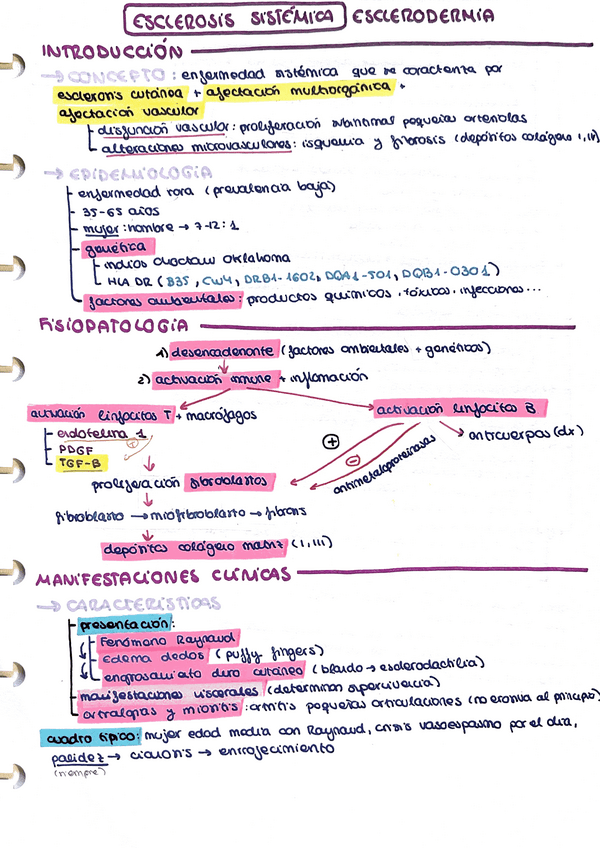 ESCLEROSIS SISTÉMICA ESCLERODERMIA
INTRODUCCIÓN
→ CONCEPTO : enfermedad sistémica que se caracteriza por
esclerosis cutánea + afectación multiorgánica +
afectación vascular
disfunción vascular : proliferación subintimal pequeñas arteriolas
alteraciones microvasculares : isquemia y fibrosis (depósitos colágeno I, III)
→ EPIDEMIOLOGÍA
enfermedad rara (prevalencia baja)
35-65 años
mujer : hombre → 7-12 : 1
genética
indios choctaw Oklahoma
HLA DR (B35, CW4, DRB1-1602, DQA1-501, DQB1-0301)
factores ambientales : productos químicos, tóxicos, infecciones...
FISIOPATOLOGÍA
1) desencadenante (factores ambientales + genéticos)
2) activación inmune + inflamación
activación linfocitos T + macrófagos
activación linfocitos B
endotelina 1
PDGF
TGF-B
+
+
-
antimetaloproteinasas
anticuerpos (dx)
proliferación fibroblastos
fibroblasto → miofibroblasto → fibrosis
depósitos colágeno matriz (I, III)
MANIFESTACIONES CLÍNICAS
→ CARACTERÍSTICAS
presentación :
Fenómeno Raynaud
Edema dedos (puffy fingers)
engrosamiento duro cutáneo (blando → esclerodactilia)
manifestaciones viscerales (determinan supervivencia)
artralgias y miositis : artritis pequeñas articulaciones (no erosiva al principio)
cuadro típico : mujer edad media con Raynaud, crisis vasoespasmo por el día,
palidez → cianosis → enrojecimiento
(siempre)